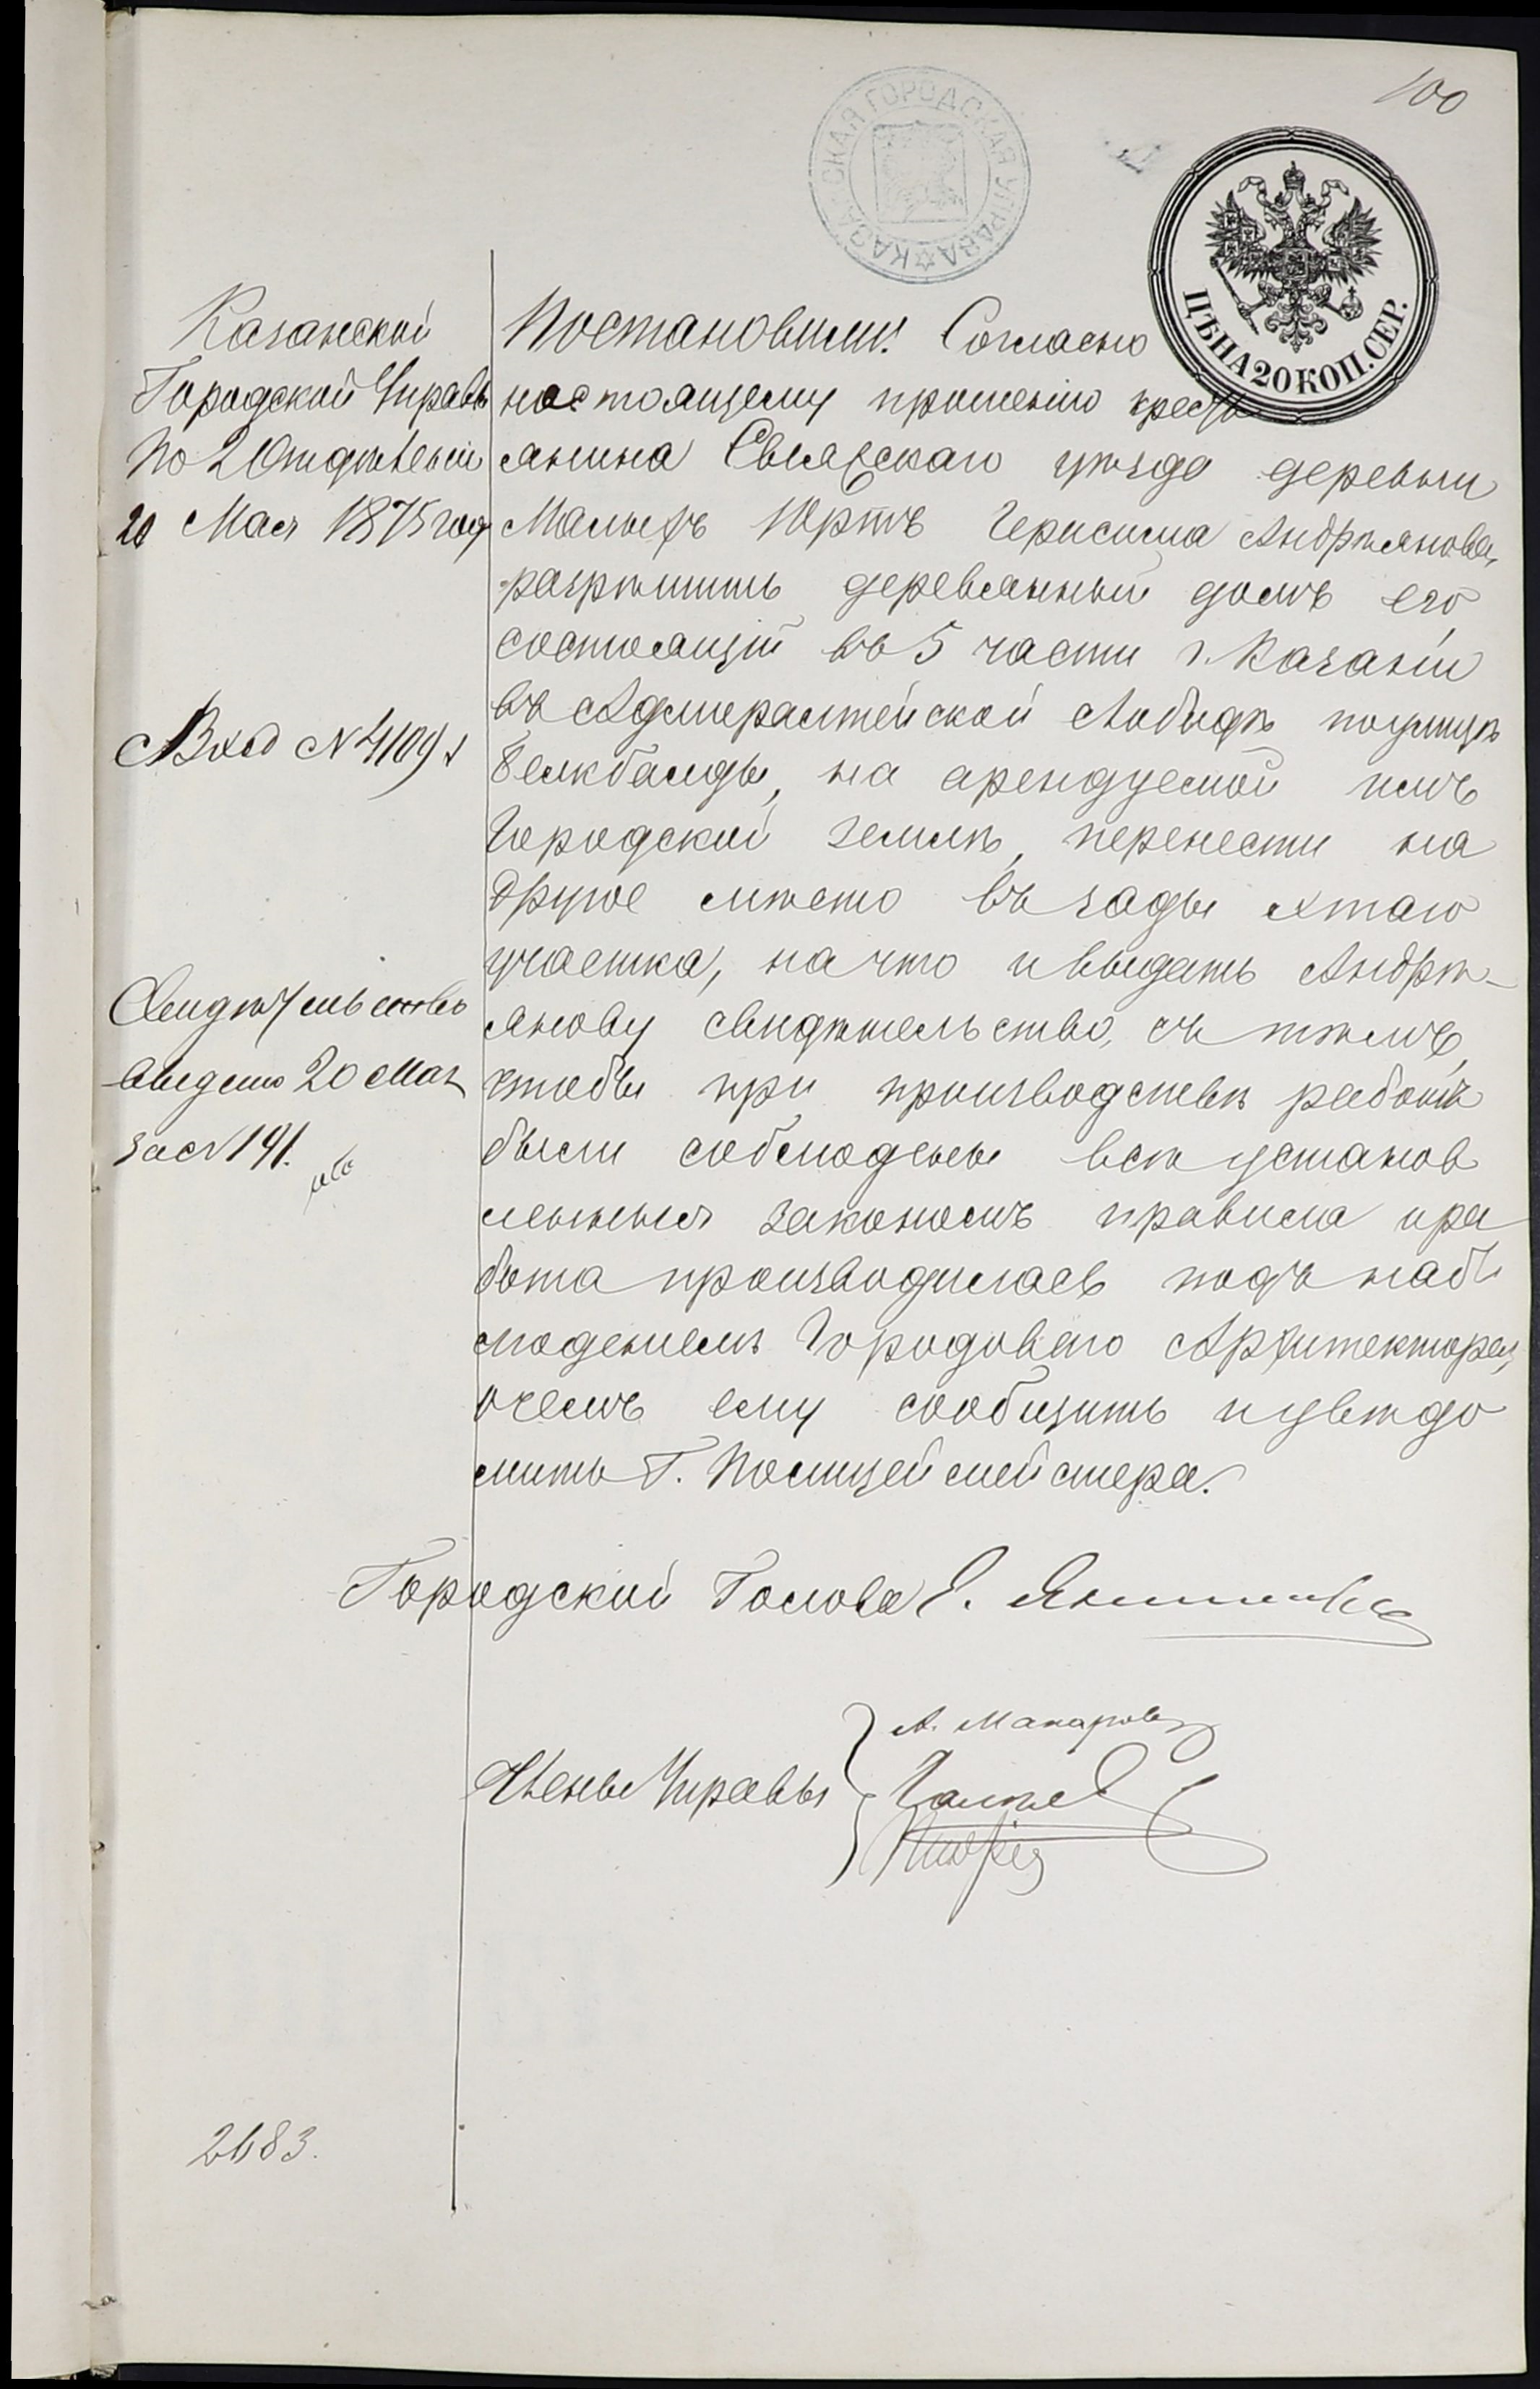 100
КАЗАНСКАЯ ГОРОДСКАЯ УПРАВА
ЦѢНА 20 КОП. СЕР.
Казанской
Городской Управѣ
по 2 Отдѣленiю
20 Мая 1875 год
Вход №4109
Свидѣтельство
выдано 20 Мая
за №191.
Постановили: Согласно
настоящему прошенiю кресть
янина Свiяжскаго уѣзда деревни
Малыхъ Юртъ Герасима Андрѣянова,
разрѣшить деревянный домъ его
состоящiй въ 5 части г. Казани
въ Адмиралтейской слободѣ по улицѣ
Бежбалды, на арендуемой имъ
Городской землѣ, перенести на
другое мѣсто въ зады этаго
участка, на что и выдать Андрѣ-
янову свидѣтельство, съ тѣмъ,
чтобы при производствѣ работъ
были соблюдены всѣ установ
ленныя закономъ правила и ра
бота производилась подъ наб
людениемъ Городоваго Архитектора,
о чемъ ему сообщить и увѣдо
мить Г. Полицеймейстера.
Городской Голова Э. Янишевскiй
Члены Управы
А. Макаровъ
2683.